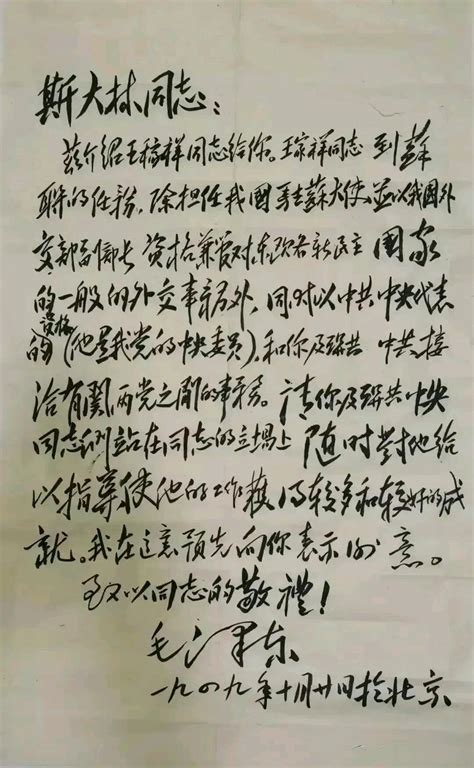 斯大林同志：
兹介绍王稼祥同志给你。王稼祥同志到蘇
联的任務，除担任我國駐蘇大使，並以我國外
交部副部长资格兼管对东欧各新民主國家
的一般的外交事务外，同时以中共中央代表
资格
的（他是我党的中央委員），和你及联共中共接
洽有關两党之間的事務。请你及联共中央
同志们站在同志的立場上随时對他给
以指導，使他的工作獲得较多和较好的成
就。我在这裏预先向你表示谢意。
致以同志的敬禮！
毛泽东
一九四九年十月廿日於北京